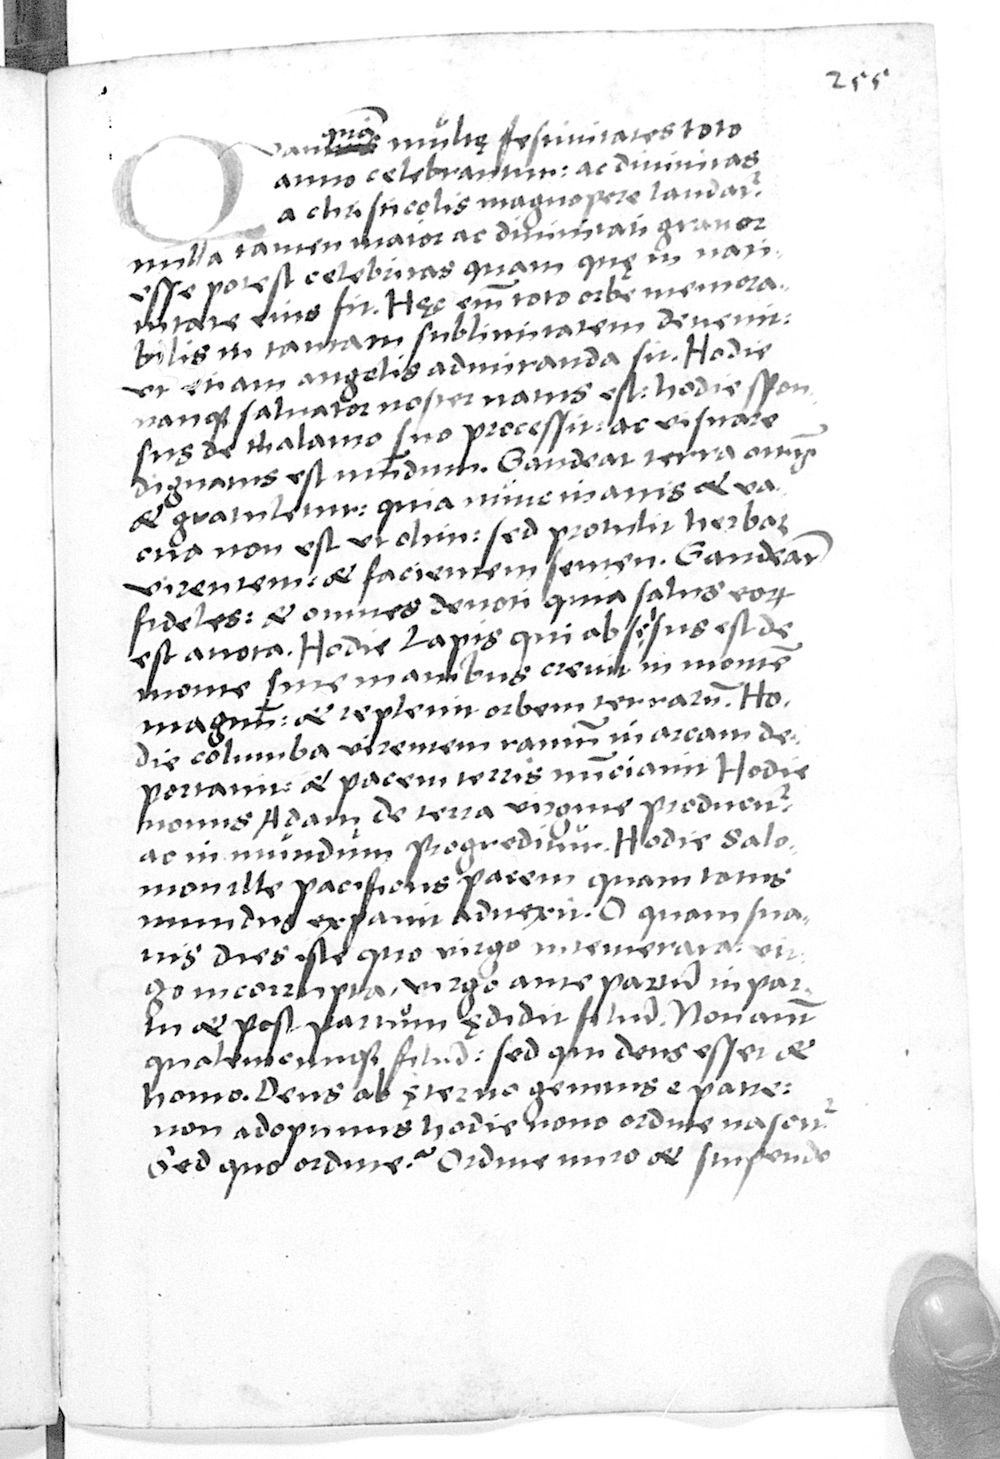 255
Quanquã multę festiuitates toto
anno celebrantur: ac diuinitas
a christicolis magnopere laudat᷑
nulla tamen maior ac diuinitati gratior
esse potest celebritas quam quę in nati-
uitate eius fit. Hęc em̃ toto orbe memora-
bilis in tantam sublimitatem deuenit:
vt etiam angelis admiranda sit. Hodie
nanq; saluator noster natus est: hodie spon
sus de thalamo suo processit: ac visitare
dignatus est mũdum. Gaudeat terra omĩs
& gratuletur: quia nunc inanis & va-
cua non est vt olim: sed protulit herbã
virentem: & facientem semen. Gaudeãt
fideles: & omnes deuoti quia salus eoꝝ
est a nota. Hodie Lapis qui absęsus est de
monte sine manibus creuit in montẽ
magnũ: & repleuit orbem terrarũ. Ho-
die columba virentem ramũ in arcam de-
portauit: & pacem terris nũciauit Hodie
nouus Adam de terra virgine producit᷑
ac in mundum progreditur. Hodie Salo-
mon ille pacificus pacem quam totus
mundus expauit aduexit. O quam sua-
uis dies iste quo virgo intemerata: vir-
go incorrupta, virgo ante partũ in par-
tu & post partum ędidit filiũ. Non autẽ
qualemcunq; filiũ: sed qui deus esset &
homo. Deus ab ęterno genitus e patre:
non adoptiuus hodie nouo ordine nascit᷑
Sed quo ordine? Ordine miro & stupendo